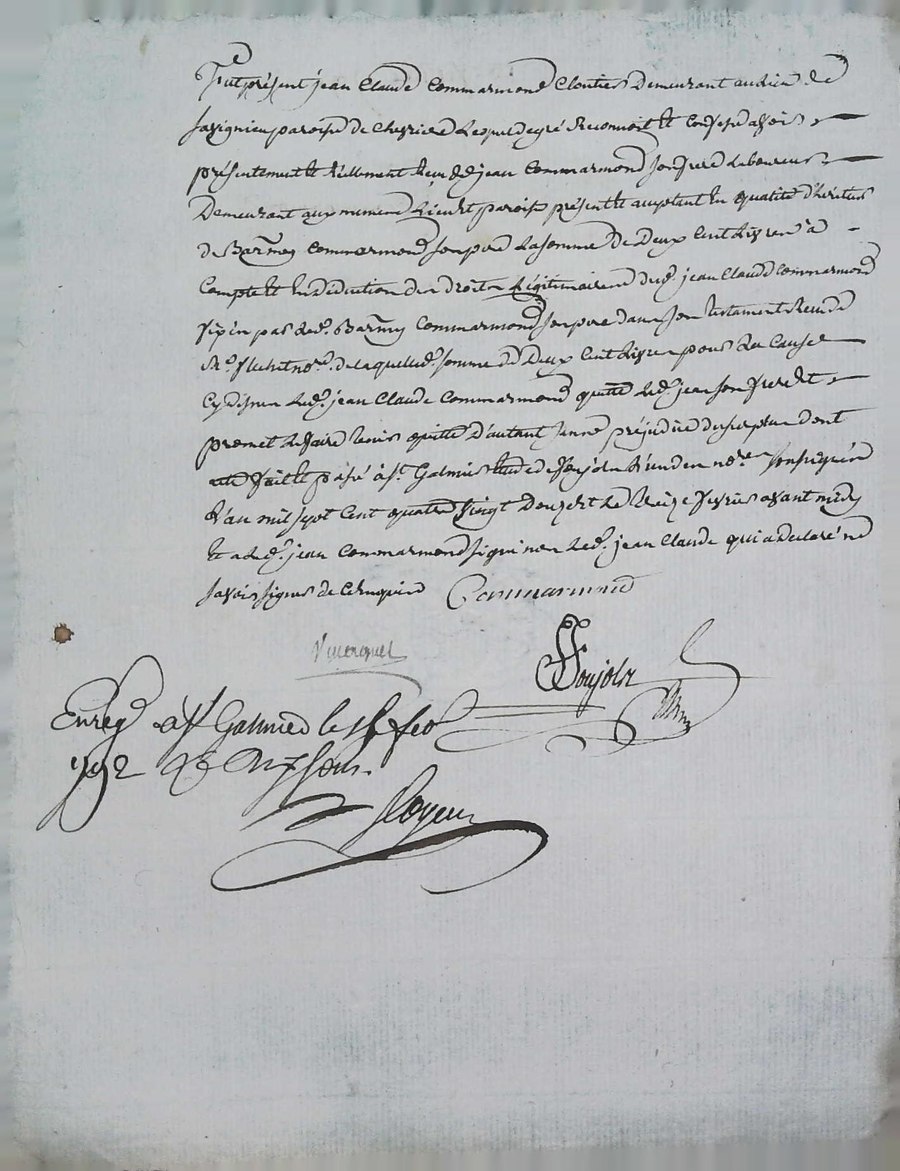 Fut présent jean Claude Commarmond Cloutier Demeurant au lieu de
savignieu paroisse de Chevriere Lequel degré Reconnoit et Confesse avoir
présentement et Réellement Reçu de jean Commarmond son frere Laboureur
Demeurant aux memes Lieu et paroisse présent et acceptant En qualité d'héritier
de Barmy Commarmond son pere La somme de Deux Cent Livres à
Compte et En déduction des droits Légitimaires dud. jean Claude Commarmond
fixés par led. Barmy Commarmond son pere dans son Testament Reçu de
Me. not.re de laquelle d. somme de Deux Cent Livres pour Les Causes
Cy dessus led. jean Claude Commarmond quitte led. jean son frere et
promet Le faire tenir quitte d'autant sans préjudice du surplus dont
acte fait et passé à St. Galmier Etude de Soujolr L'un des no.res soussignés
L'an mil sept Cent quatre vingt Douze et le treize fevrier avant midy
Et a Led. jean Commarmond signé non Led. jean Claude qui a declaré ne
savoir signer de Ce Enquis Commarmond
Soujolr
Enregé. à St Galmier le fev
1792 R sous.